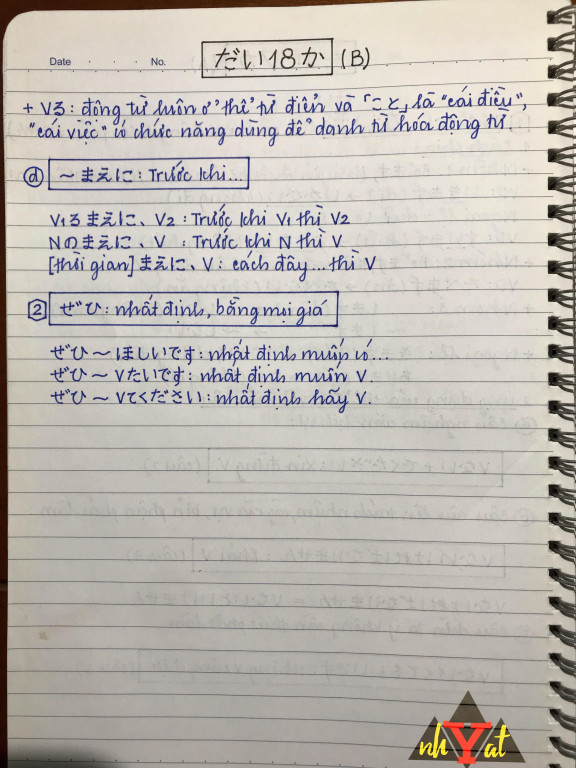 Date No. だい18か (B)
+ Vる: động từ luôn ở thể từ điển và「こと」là "cái điều",
"cái việc" có chức năng dùng để danh từ hóa động từ.
d ~まえに: Trước khi...
V1るまえに、V2: Trước khi V1 thì V2
Nのまえに、V: Trước khi N thì V
[thời gian]まえに、V: cách đây... thì V
2 ぜひ: nhất định, bằng mọi giá
ぜひ~ほしいです: nhất định muốn có...
ぜひ~Vたいです: nhất định muốn V.
ぜひ~Vてください: nhất định hãy V.
nhYat